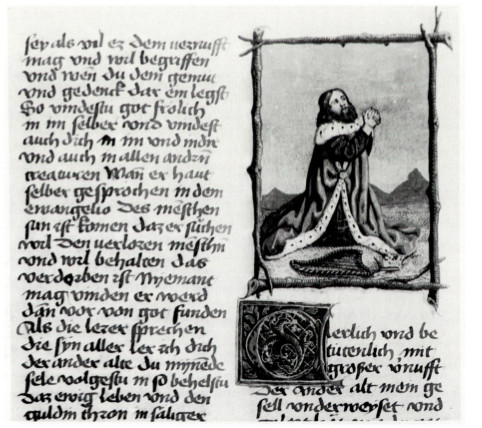 sey als vil ez dem vernufft
mag vnd wil begriffen
vnd wen du dem gemut
vnd gedenck dar ein legst
So vindestu got frolich
in im selber vnd vindest
auch dich in im vnd in dir
vnd auch in allen andern
creaturen Wan er haut
selber gesprochen in dem
ewangelio Des menschen
sun ist komen daz er suchen
wil den verlozen menschen
vnd wil behalten das
verdorben ist Nyemant
mag vinden er werd
dan vor von got funden
Als die lezer sprechen
die syn aller ler ich dich
der ander alte du mynnede
sele volgestu in so behelstu
daz ewig leben vnd den
guldin thron in saliger
erlich vnd be
tutenlich mit
großer vnufft
Der ander alt mein ge
sell vnderweyset vnd